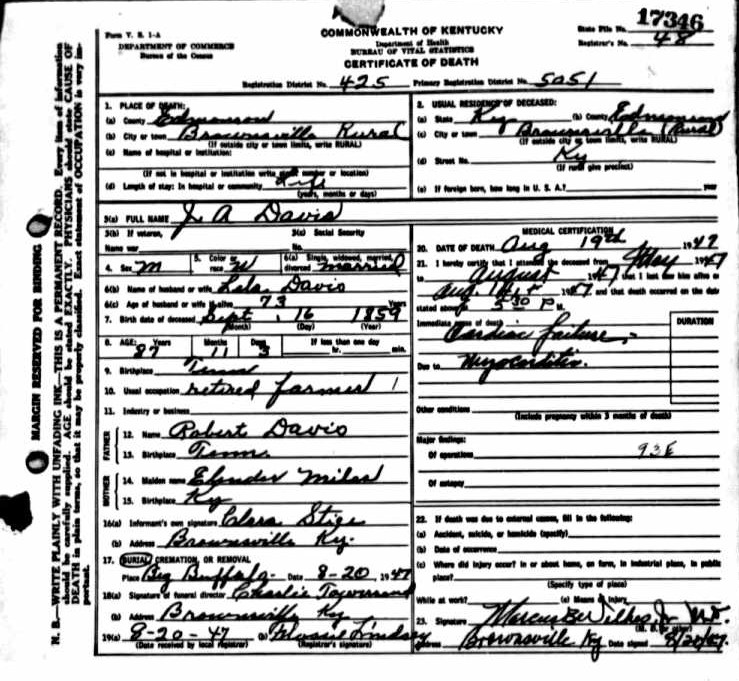 17346
Form V. S. 1-A
COMMONWEALTH OF KENTUCKY
State File No.
DEPARTMENT OF COMMERCE
Bureau of the Census
Department of Health
BUREAU OF VITAL STATISTICS
Registrar's No. 48
CERTIFICATE OF DEATH
Registration District No. 425 Primary Registration District No. 5051
MARGIN RESERVED FOR BINDING
N. B.—WRITE PLAINLY WITH UNFADING INK—THIS IS A PERMANENT RECORD. Every item of information
should be carefully supplied. AGE should be stated EXACTLY. PHYSICIANS should state CAUSE OF
DEATH in plain terms, so that it may be properly classified. Exact statement of OCCUPATION is very im-
portant.
1. PLACE OF DEATH:
(a) County Edmonson
(b) City or town Brownsville Rural
(If outside city or town limits, write RURAL)
(c) Name of hospital or institution:
(If not in hospital or institution write street number or location)
(d) Length of stay: In hospital or community Life
(years, months or days)
2. USUAL RESIDENCE OF DECEASED:
(a) State Ky (b) County Edmonson
(c) City or town Brownsville (Rural)
(If outside city or town limits, write RURAL)
(d) Street No. Ky
(If rural give precinct)
(e) If foreign born, how long in U. S. A.? year
3(a) FULL NAME J. A Davis
3(b) If veteran,
Name war
3(c) Social Security
No.
4. Sex M
5. Color or
race W
6(a) Single, widowed, married,
divorced married
6(b) Name of husband or wife Lela Davis
6(c) Age of husband or wife if alive 73 Years
7. Birth date of deceased Sept. 16 1859
(Month) (Day) (Year)
8. AGE: Years Months Days If less than one day
87 11 3 hr. min.
9. Birthplace Tenn
10. Usual occupation retired farmer
11. Industry or business
FATHER
12. Name Robert Davis
13. Birthplace Tenn.
MOTHER
14. Maiden name Elender Miles
15. Birthplace Ky
16(a) Informant's own signature Clara
(b) Address Brownsville Ky.
17. BURIAL, CREMATION, OR REMOVAL
Place Big Buffalo Date 8-20 1947
18(a) Signature of funeral director Charlie
(b) Address Brownsville Ky
19(a) 8-20-47 (b) Flossie Lindsey
(Date received by local registrar) (Registrar's signature)
MEDICAL CERTIFICATION
20. DATE OF DEATH Aug 19th 1947
21. I hereby certify that I attended the deceased from May 1947
to August 1947 that I last saw him alive on
Aug. 1947 and that death occurred on the date
stated above at 5:30 P M.
Immediate cause of death
Cardiac failure
DURATION
Due to Myocarditis.
Other conditions
(Include pregnancy within 3 months of death)
Major findings:
Of operations 93E
Of autopsy
22. If death was due to external causes, fill in the following:
(a) Accident, suicide, or homicide (specify)
(b) Date of occurrence
(c) Where did injury occur? in or about home, on farm, in industrial place, in public
place?
(Specify type of place)
While at work? (e) Means of Injury
23. Signature Marcus B Wilkes, Jr. M.D.
(M. D. or other)
Brownsville Ky Date signed 8/20/47.